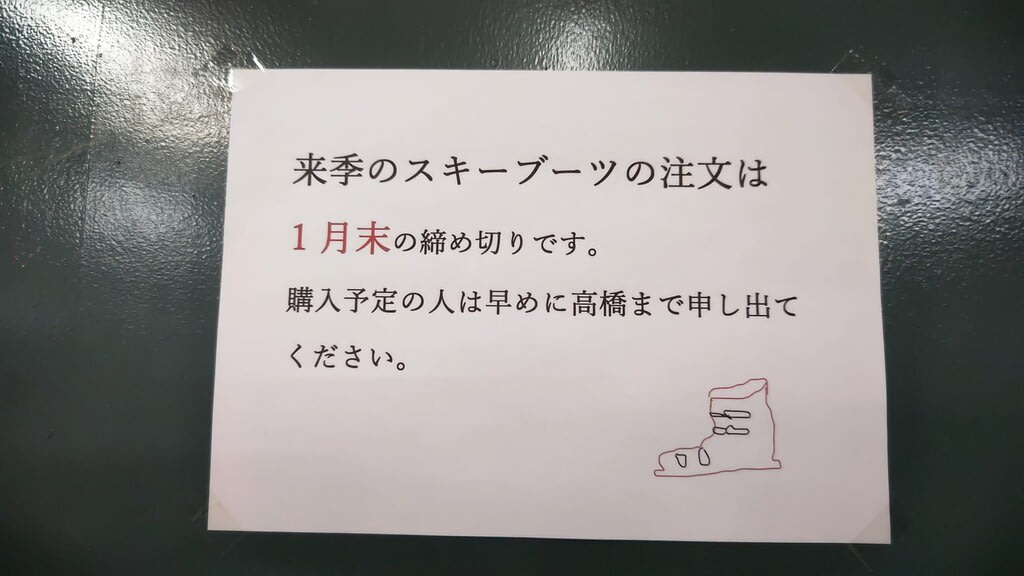 来季のスキーブーツの注文は
1月末の締め切りです。
購入予定の人は早めに高橋まで申し出て
ください。